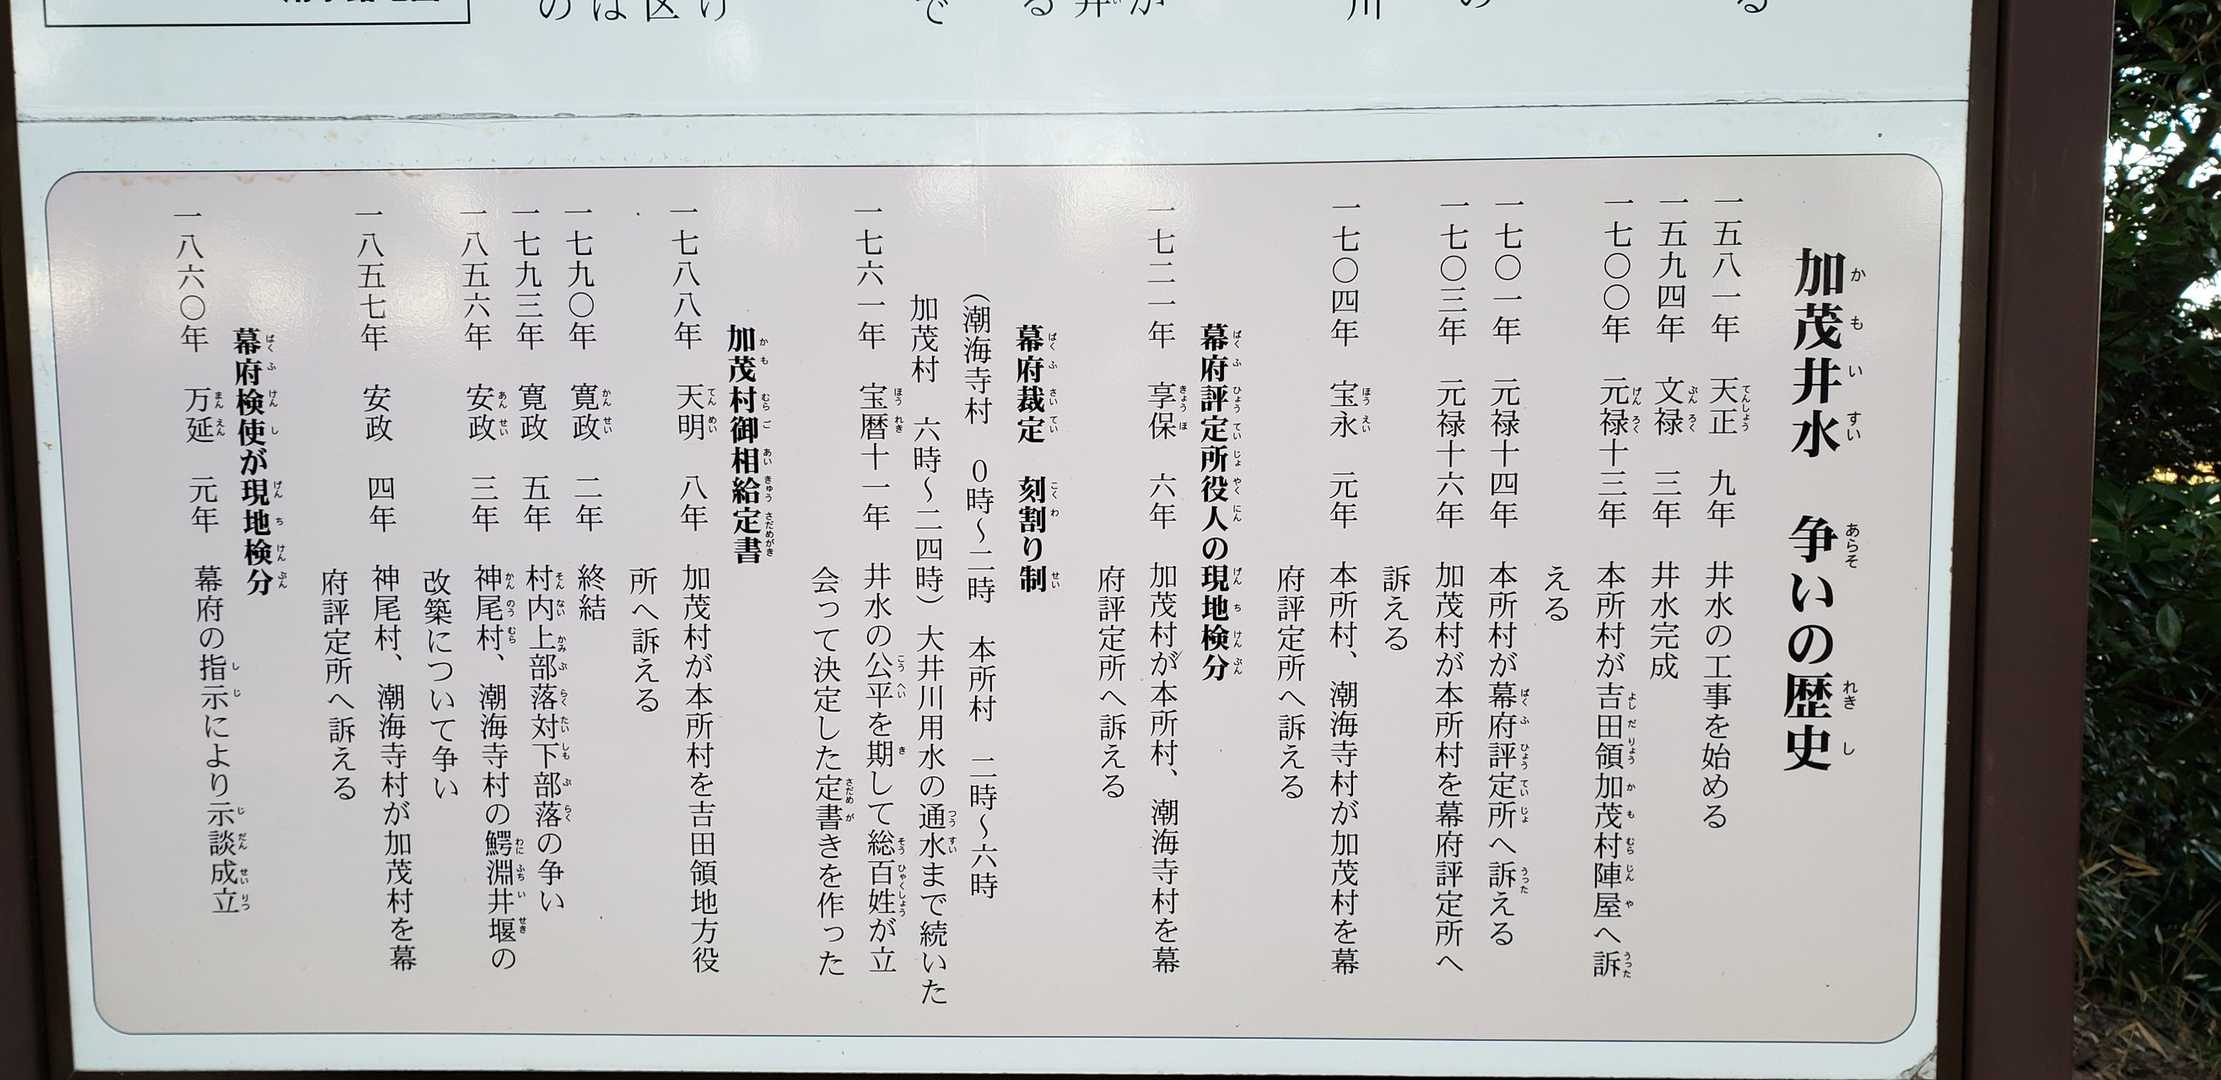 加茂井水　争いの歴史
一五八一年　天正　九年　井水の工事を始める
一五九四年　文禄　三年　井水完成
一七〇〇年　元禄十三年　本所村が吉田領加茂村陣屋へ訴
える
一七〇一年　元禄十四年　本所村が幕府評定所へ訴える
一七〇三年　元禄十六年　加茂村が本所村を幕府評定所へ
訴える
一七〇四年　宝永　元年　本所村、潮海寺村が加茂村を幕
府評定所へ訴える
幕府評定所役人の現地検分
一七二一年　享保　六年　加茂村が本所村、潮海寺村を幕
府評定所へ訴える
幕府裁定　刻割り制
（潮海寺村　０時〜二時　本所村　二時〜六時
加茂村　六時〜二四時）大井川用水の通水まで続いた
一七六一年　宝暦十一年　井水の公平を期して総百姓が立
会って決定した定書きを作った
加茂村御相給定書
一七八八年　天明　八年　加茂村が本所村を吉田領地方役
所へ訴える
一七九〇年　寛政　二年　終結
一七九三年　寛政　五年　村内上部落対下部落の争い
一八五六年　安政　三年　神尾村、潮海寺村の鰐淵井堰の
改築について争い
一八五七年　安政　四年　神尾村、潮海寺村が加茂村を幕
府評定所へ訴える
幕府検使が現地検分
一八六〇年　万延　元年　幕府の指示により示談成立